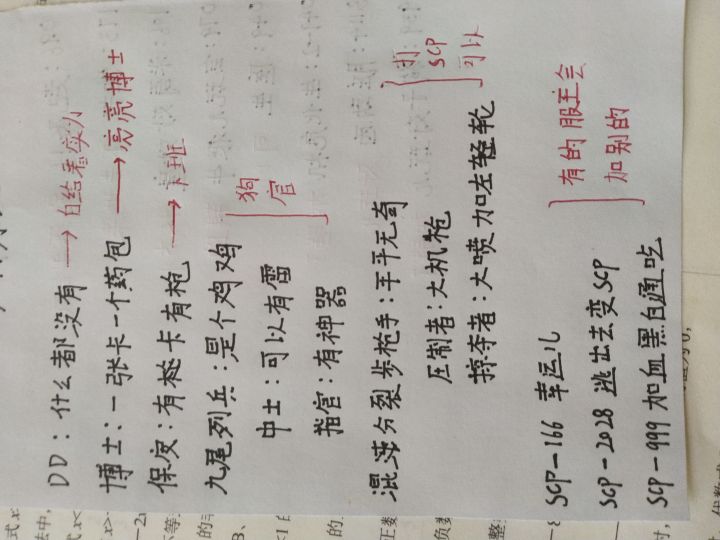 DD：什么都没有 → 白给悬疲劳
博士：一张卡一个药包 → 亮亮博士
保安：有秘卡有枪 → 下班
九尾列兵：是个鸡鸡
中士：可以有雷
指官：有神器
狗官
混沌分裂步枪手：平平无奇
压制者：大机枪
掠夺者：大喷加左轻轮
打SCP可以
SCP-166 幸运儿
SCP-2028 逃出去变SCP
SCP-999 加血黑白通吃
有的服主会
加别的